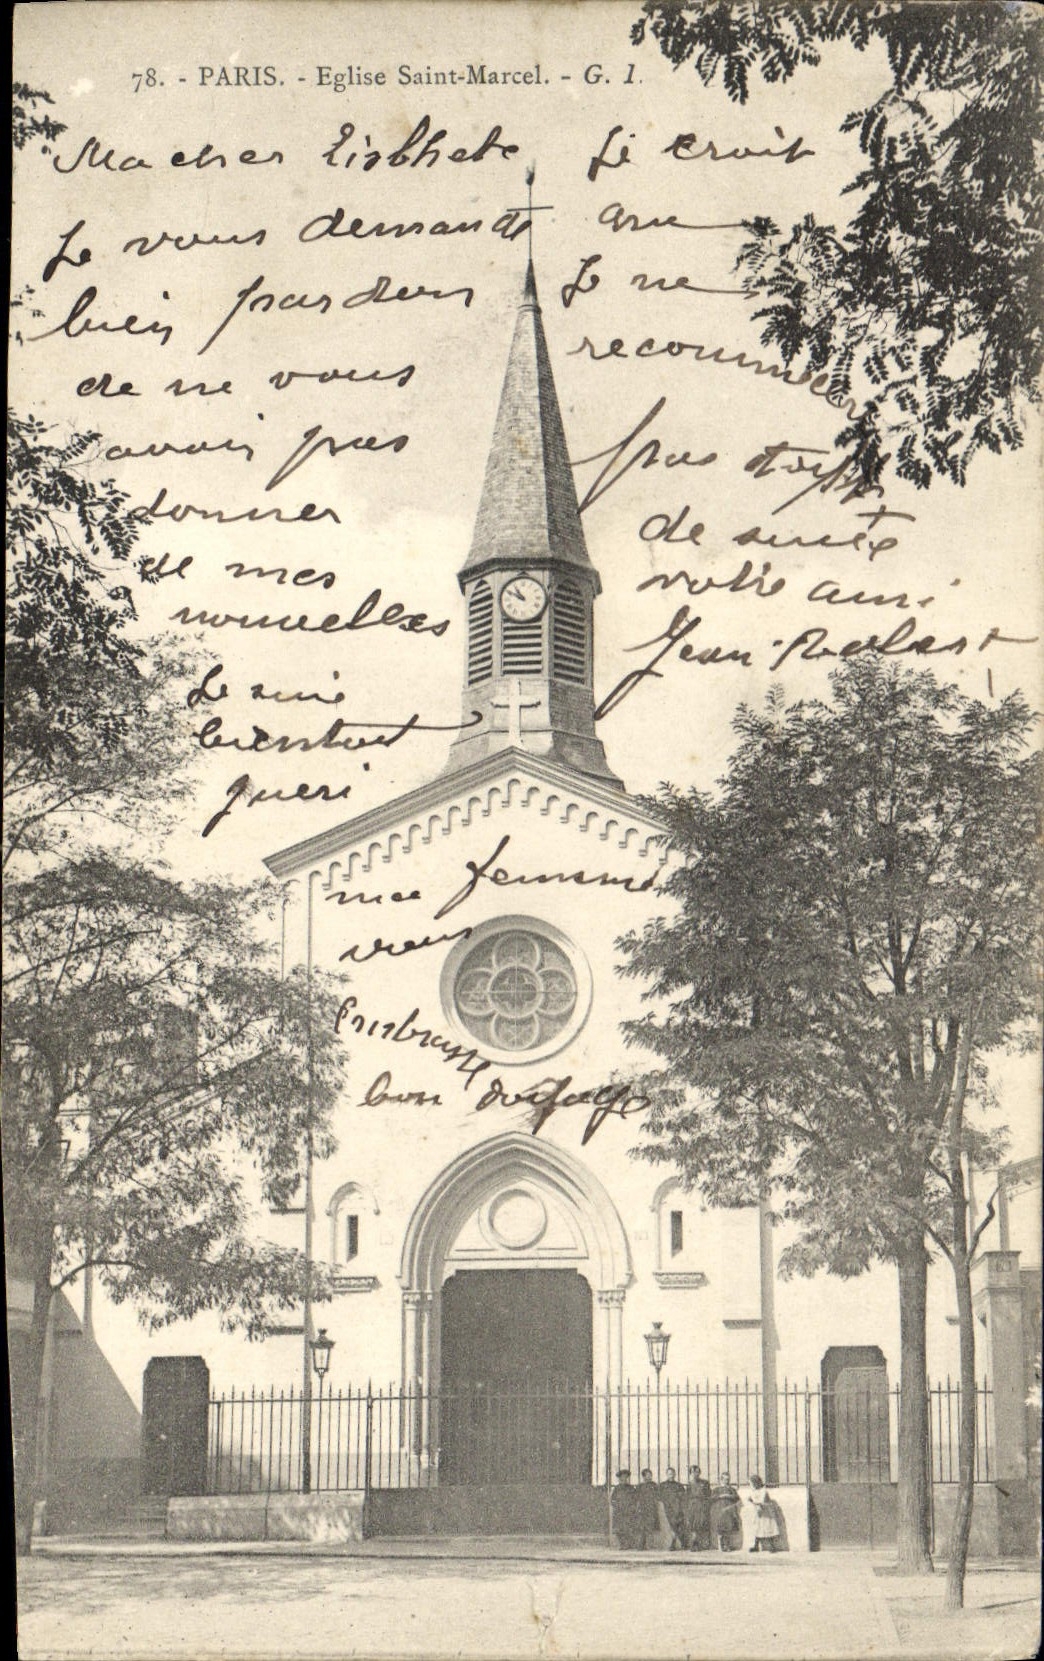 78. - PARIS. - Eglise Saint-Marcel. - G. I.
Ma cher Lisbhete
Je vous demande
bien pardon
de ne vous
avoir pas
donner
de mes
nouvelles
Je suie
bientout
gueri
ma femme
vous
Embrasse
bon
Je croit
que
Je ne
recommecer
pas
de suite
votre ami
Jean